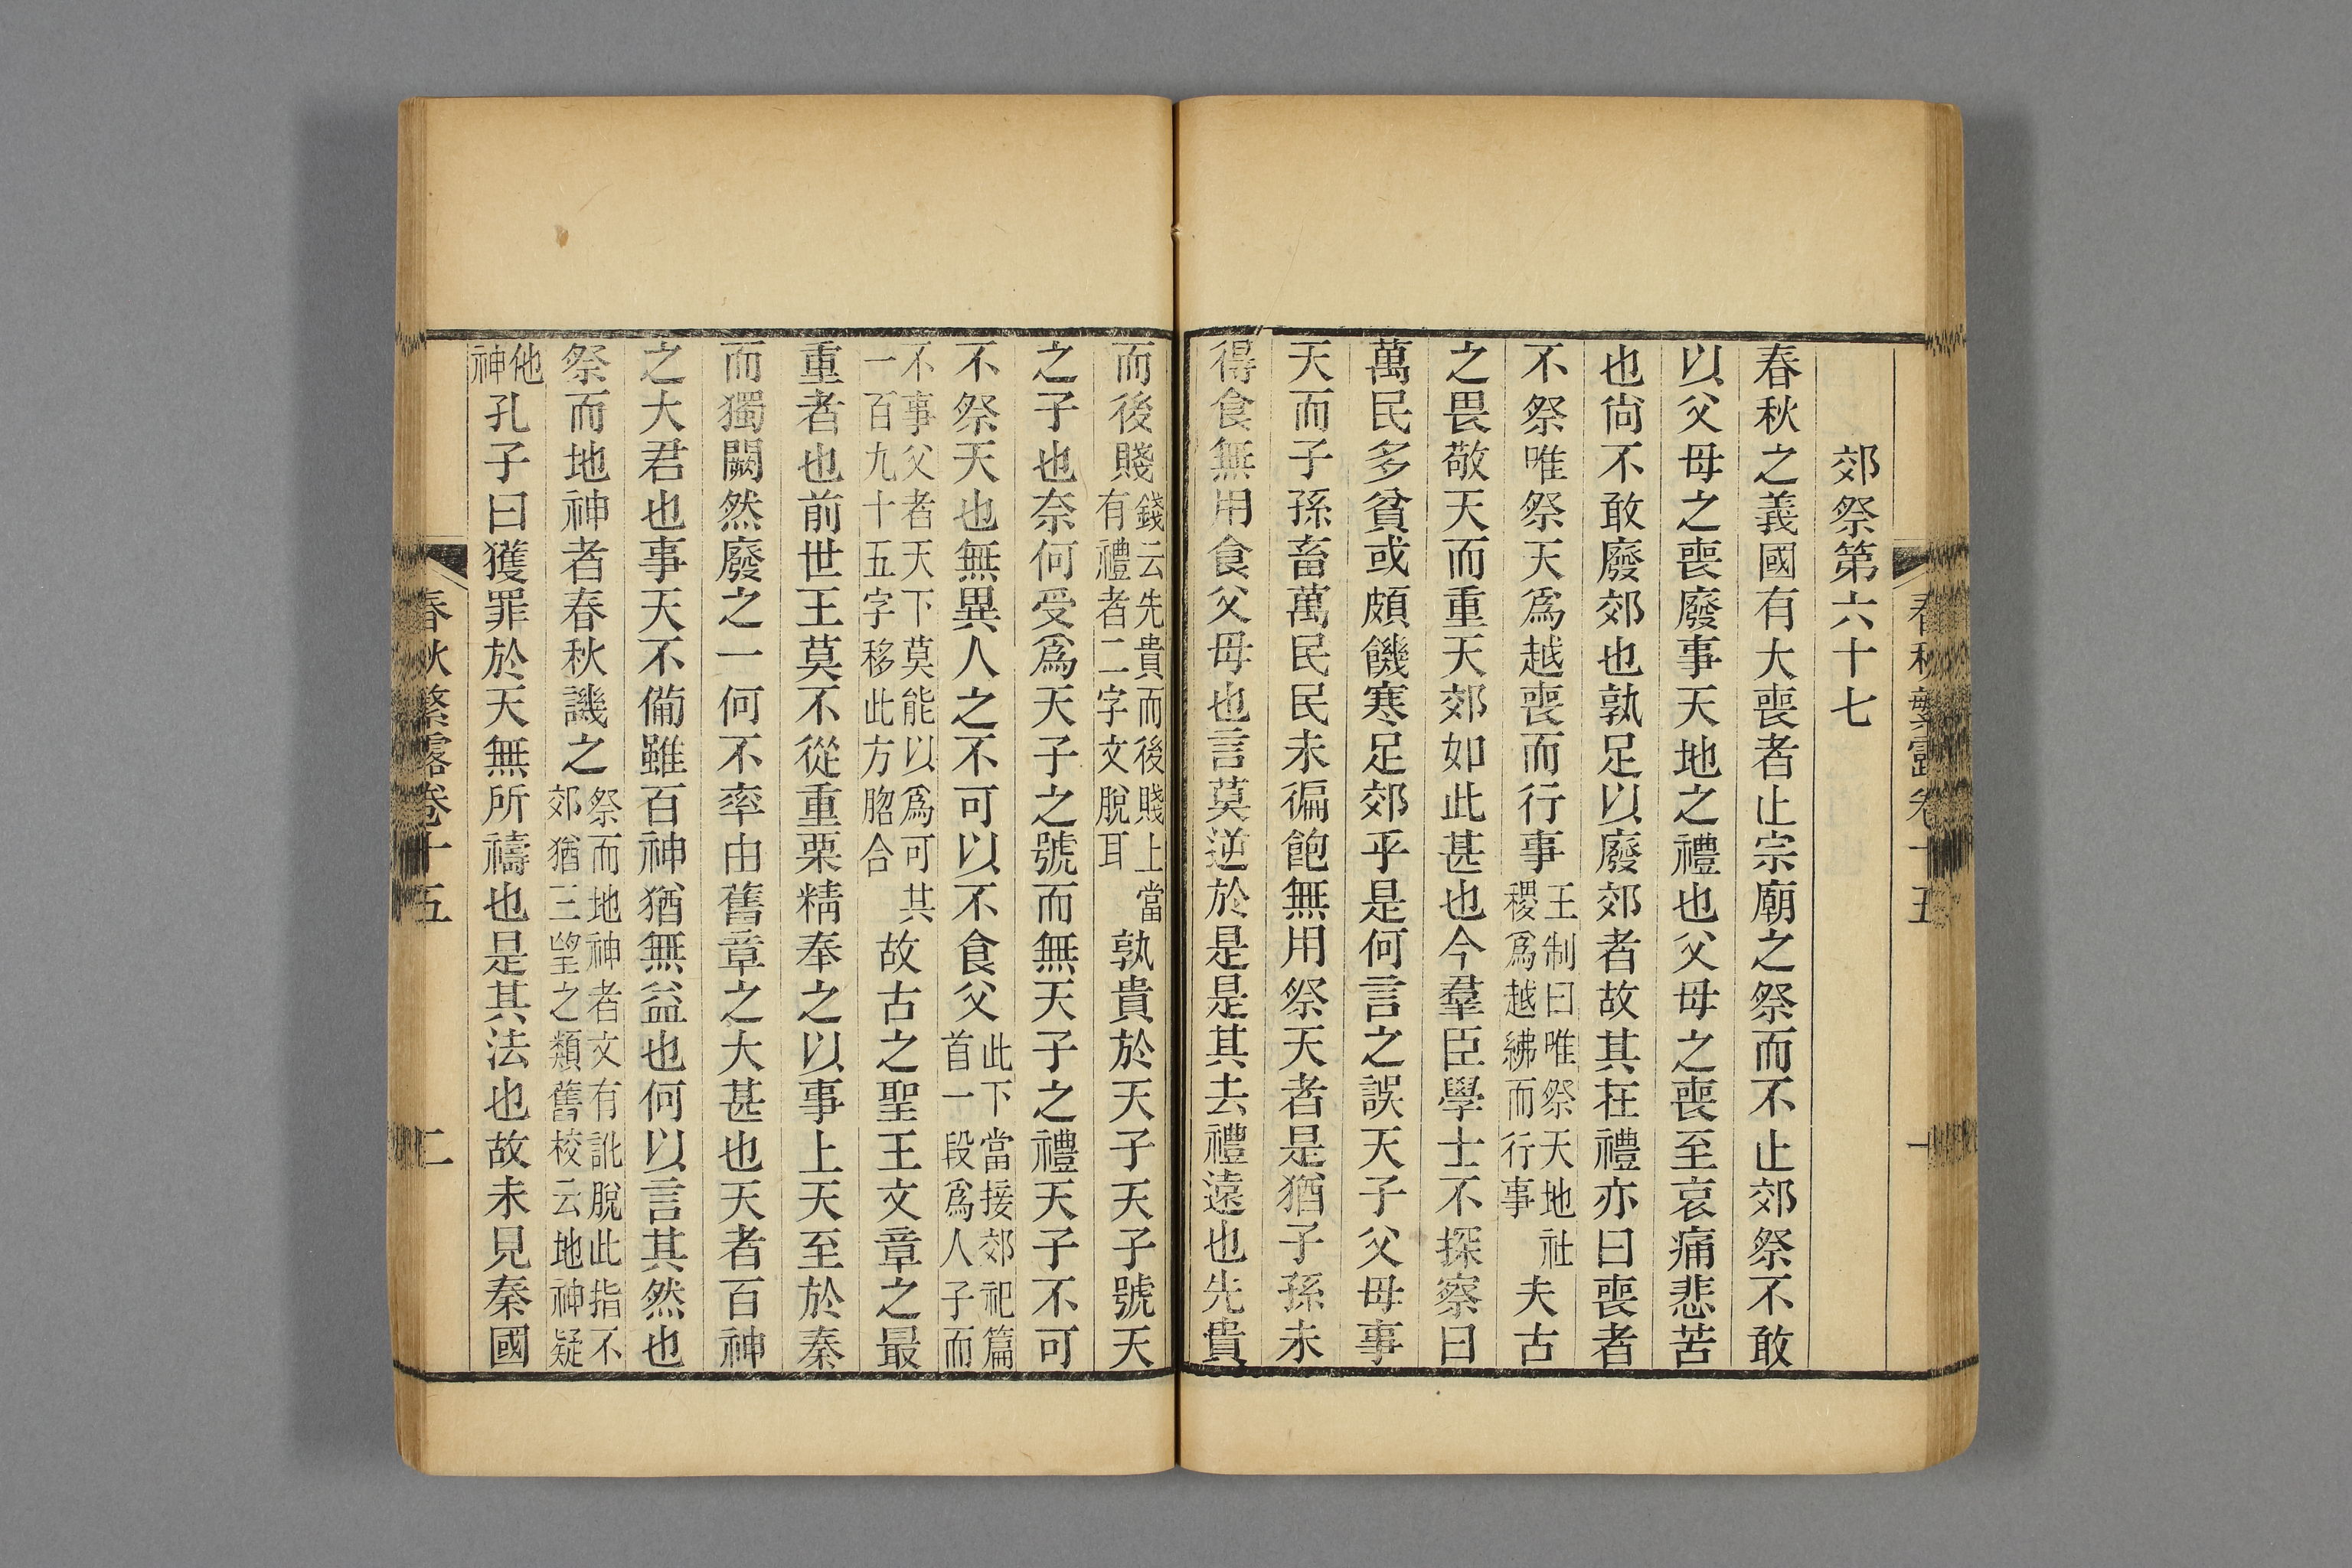 春秋繁露卷十五 一
郊祭第六十七
春秋之義國有大喪者止宗廟之祭而不止郊祭不敢
以父母之喪廢事天地之禮也父母之喪至哀痛悲苦
也尙不敢廢郊也孰足以廢郊者故其在禮亦曰喪者
不祭唯祭天爲越喪而行事王制曰唯祭天地社稷爲越紼而行事夫古
之畏敬天而重天郊如此甚也今羣臣學士不探察曰
萬民多貧或頗饑寒足郊乎是何言之誤天子父母事
天而子孫畜萬民民未徧飽無用祭天者是猶子孫未
得食無用食父母也言莫逆於是是其去禮遠也先貴
而後賤錢云先貴而後賤上當有禮者二字文脫耳孰貴於天子天子號天
之子也奈何受爲天子之號而無天子之禮天子不可
不祭天也無異人之不可以不食父此下當接郊祀篇首一段爲人子而
不事父者天下莫能以爲可共一百九十五字移此方䏰合故古之聖王文章之最
重者也前世王莫不從重栗精奉之以事上天至於秦
而獨闕然廢之一何不率由舊章之大甚也天者百神
之大君也事天不備雖百神猶無益也何以言其然也
祭而地神者春秋譏之祭而地神者文有訛脫此指不郊猶三望之類舊校云地神疑
他神孔子曰獲罪於天無所禱也是其法也故未見秦國
春秋繁露卷十五 二